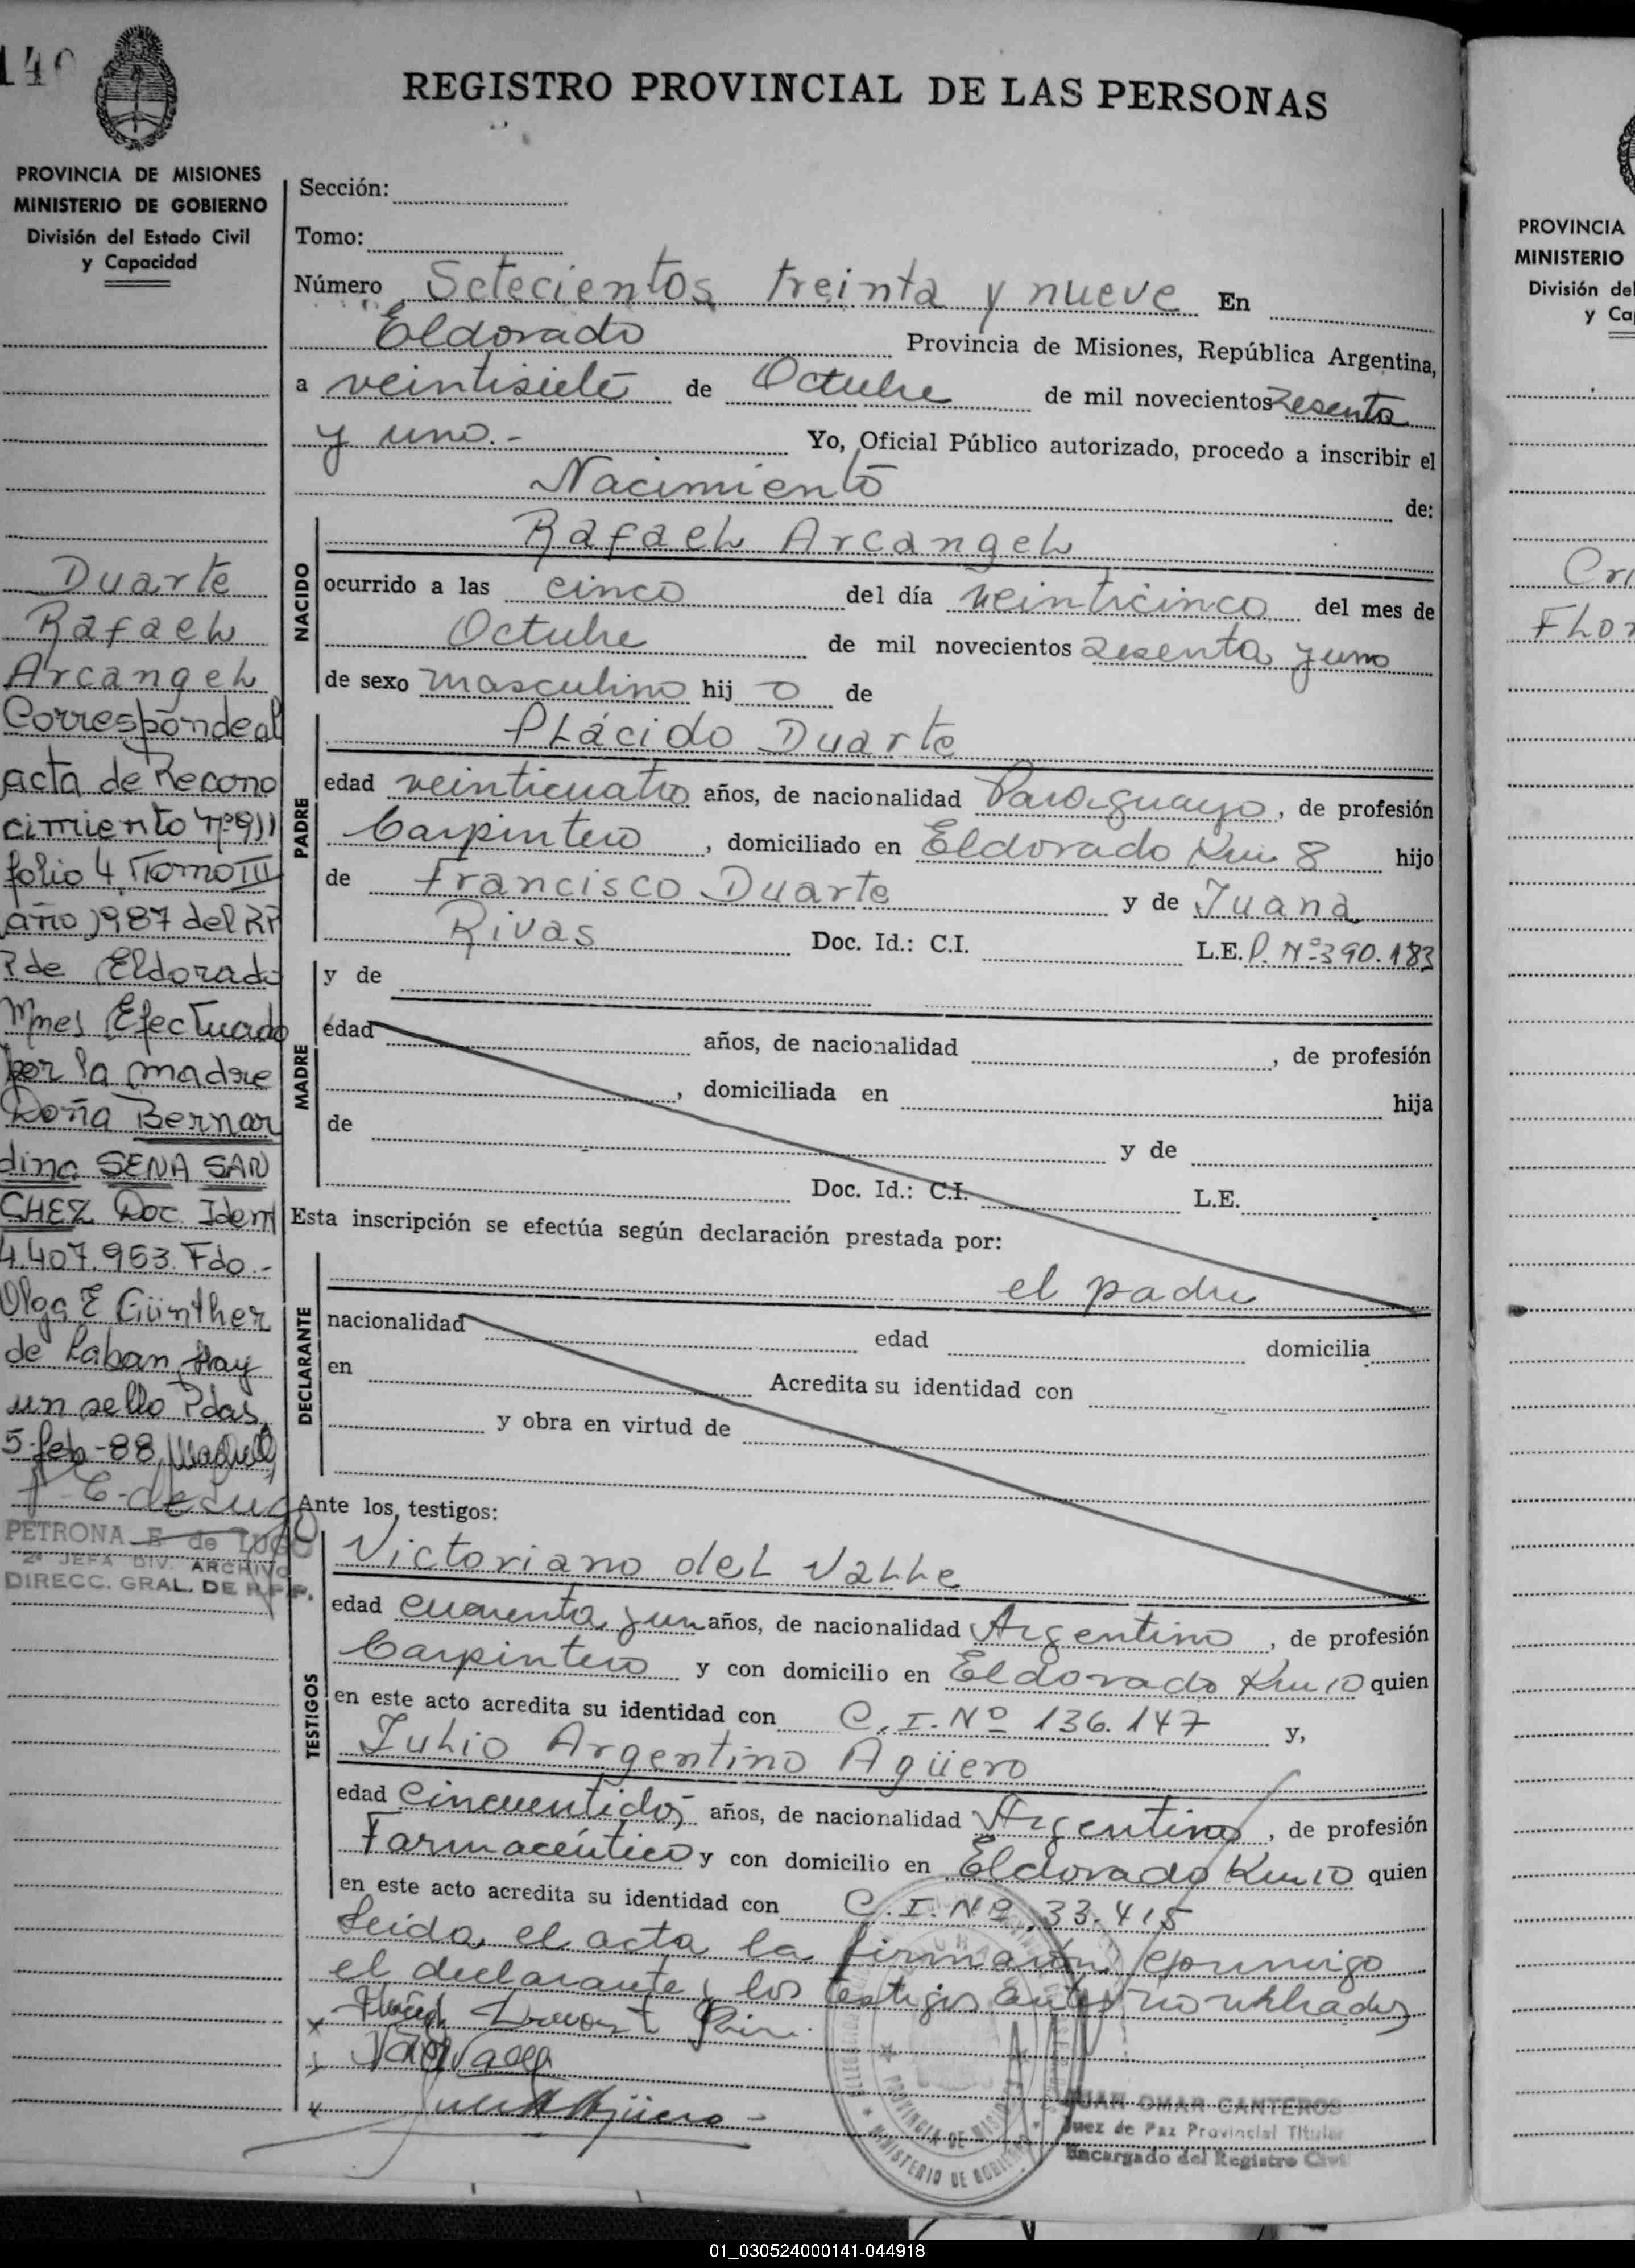 REGISTRO PROVINCIAL DE LAS PERSONAS
PROVINCIA DE MISIONES
MINISTERIO DE GOBIERNO
División del Estado Civil
y Capacidad
Duarte
Rafael
Arcangel
Corresponde al
acta de Recono
cimiento
folio 4 Tomo III
año 1987 del RP
P de Eldorado
Mnes Efectuado
por la madre
Doña Bernar
dina SENA SAN
CHEZ Doc Ident
4.407.953 Fdo.-
Olga E Günther
de Laban Hay
un sello Pdas,
5-feb-88
PETRONA E de LUGO
2ª JEFA DIV. ARCHIVO
DIRECC. GRAL. DE R.P.P.
Sección:
Tomo:
Número Setecientos treinta y nueve En
Eldorado Provincia de Misiones, República Argentina,
a veintisiete de Octubre de mil novecientos sesenta
y uno.- Yo, Oficial Público autorizado, procedo a inscribir el
Nacimiento de:
NACIDO
Rafael Arcangel
ocurrido a las cinco del día veinticinco del mes de
Octubre de mil novecientos sesenta y uno
de sexo masculino hij o de
PADRE
Plácido Duarte
edad veinticuatro años, de nacionalidad Paraguayo, de profesión
Carpintero, domiciliado en Eldorado Km 8 hijo
de Francisco Duarte y de Juana
Rivas Doc. Id.: C.I. L.E. P. Nº 390.183
MADRE
y de
edad años, de nacionalidad , de profesión
, domiciliada en hija
de y de
Doc. Id.: C.I. L.E.
Esta inscripción se efectúa según declaración prestada por:
DECLARANTE
el padre
nacionalidad edad domicilia
en Acredita su identidad con
y obra en virtud de
Ante los testigos:
TESTIGOS
Victoriano del Valle
edad cuarenta y un años, de nacionalidad Argentino, de profesión
Carpintero y con domicilio en Eldorado Km 10 quien
en este acto acredita su identidad con C.I. Nº 136.147 y,
Julio Argentino Agüero
edad cincuentidos años, de nacionalidad Argentino, de profesión
Farmacéutico y con domicilio en Eldorado Km 10 quien
en este acto acredita su identidad con C.I. Nº 33.415
Leida el acta la firmaron conmigo
el declarante y los testigos antes nombrados
JUAN OMAR CANTEROS
Juez de Paz Provincial Titular
Encargado del Registro Civil
PROVINCIA DE MISIONES
MINISTERIO DE GOBIERNO
PROVINCIA
MINISTERIO
División del
y Ca
01_030524000141-044918